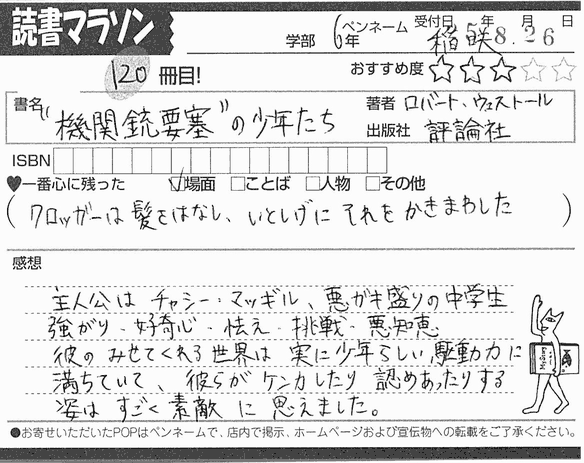 読書マラソン
学部 6年 ペンネーム 稲咲 受付日 5年8月26日
120冊目! おすすめ度 ☆☆☆☆☆
書名 "機関銃要塞"の少年たち
著者 ロバート、ウェストール
出版社 評論社
ISBN
♥一番心に残った ☑場面 □ことば □人物 □その他
(クロッガーは髪をはなし、いとしげにそれをかきまわした)
感想
主人公は チャシー・マッギル、悪ガキ盛りの中学生
強がり・好奇心・怯え・挑戦・悪知恵
彼の みせてくれる 世界は 実に少年らしい 駆動力に
満ちていて、彼らが ケンカしたり 認めあったりする
姿は すごく 素敵 に 思えました。
●お寄せいただいたPOPはペンネームで、店内で掲示、ホームページおよび宣伝物への転載をご了承ください。